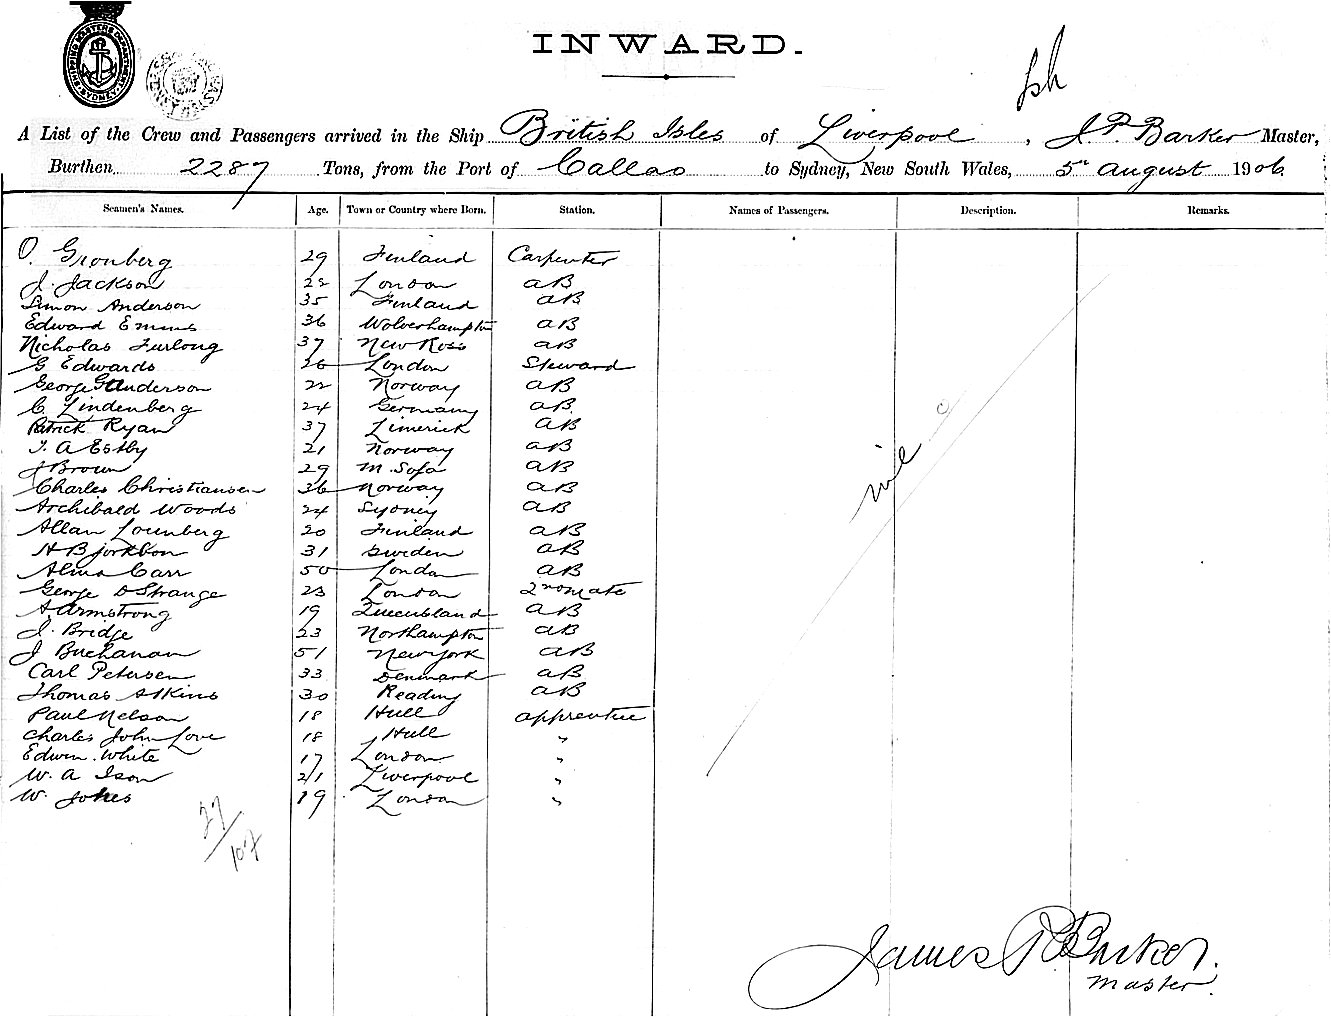 SHIPPING MASTERS DEPARTMENT SYDNEY
INWARD.
A List of the Crew and Passengers arrived in the Ship British Isles of Liverpool, J. P. Barker Master,
Burthen 2287 Tons, from the Port of Callao to Sydney, New South Wales, 5th august 1906
Seamen's Names. Age. Town or Country where Born. Station. Names of Passengers. Description. Remarks.
O. Gronberg 29 Finland Carpenter
J. Jackson 22 London aB
Simon Anderson 35 Finland aB
Edward Emms 36 Wolverhampton aB
Nicholas Furlong 37 New Ross aB
G Edwards 26 London Steward
George G Anderson 22 Norway aB
C. Lindenberg 24 Germany aB
Patrick Ryan 37 Limerick aB
T. A Estby 21 Norway aB
J Brown 29 M. Sofa aB
Charles Christiansen 36 Norway aB
Archibald Woods 24 Sydney aB
Allan Lounberg 20 Finland aB
H Bjorkbon 31 Sweden aB
Alma Carr 50 London aB
George D Strange 23 London 2nd mate
A Armstrong 19 Queensland aB
J. Bridge 23 Northampton aB
J Buchanan 51 New York aB
Carl Petersen 33 Denmark aB
Thomas Atkins 30 Reading aB
Paul Nelson 18 Hull apprentice
Charles John Love 18 Hull "
Edwin White 17 London "
W. A Ison 21 Liverpool "
W. Jones 19 London "
nil
27/107
James P Barker.
Master.